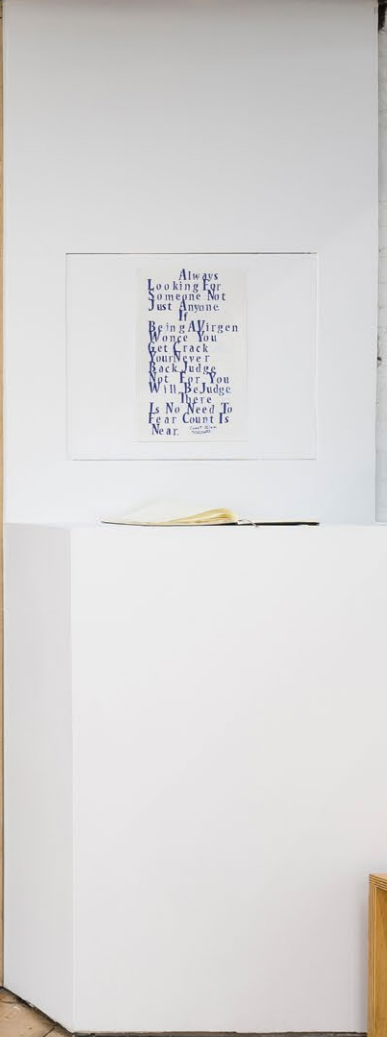 Always
Looking For
Someone Not
Just Anyone.
If
Being A Virgen
Wonce You
Get Crack
Your Never
Back Judge
Not For You
Will Be Judge
There
Is No Need To
Fear Count Is
Near.